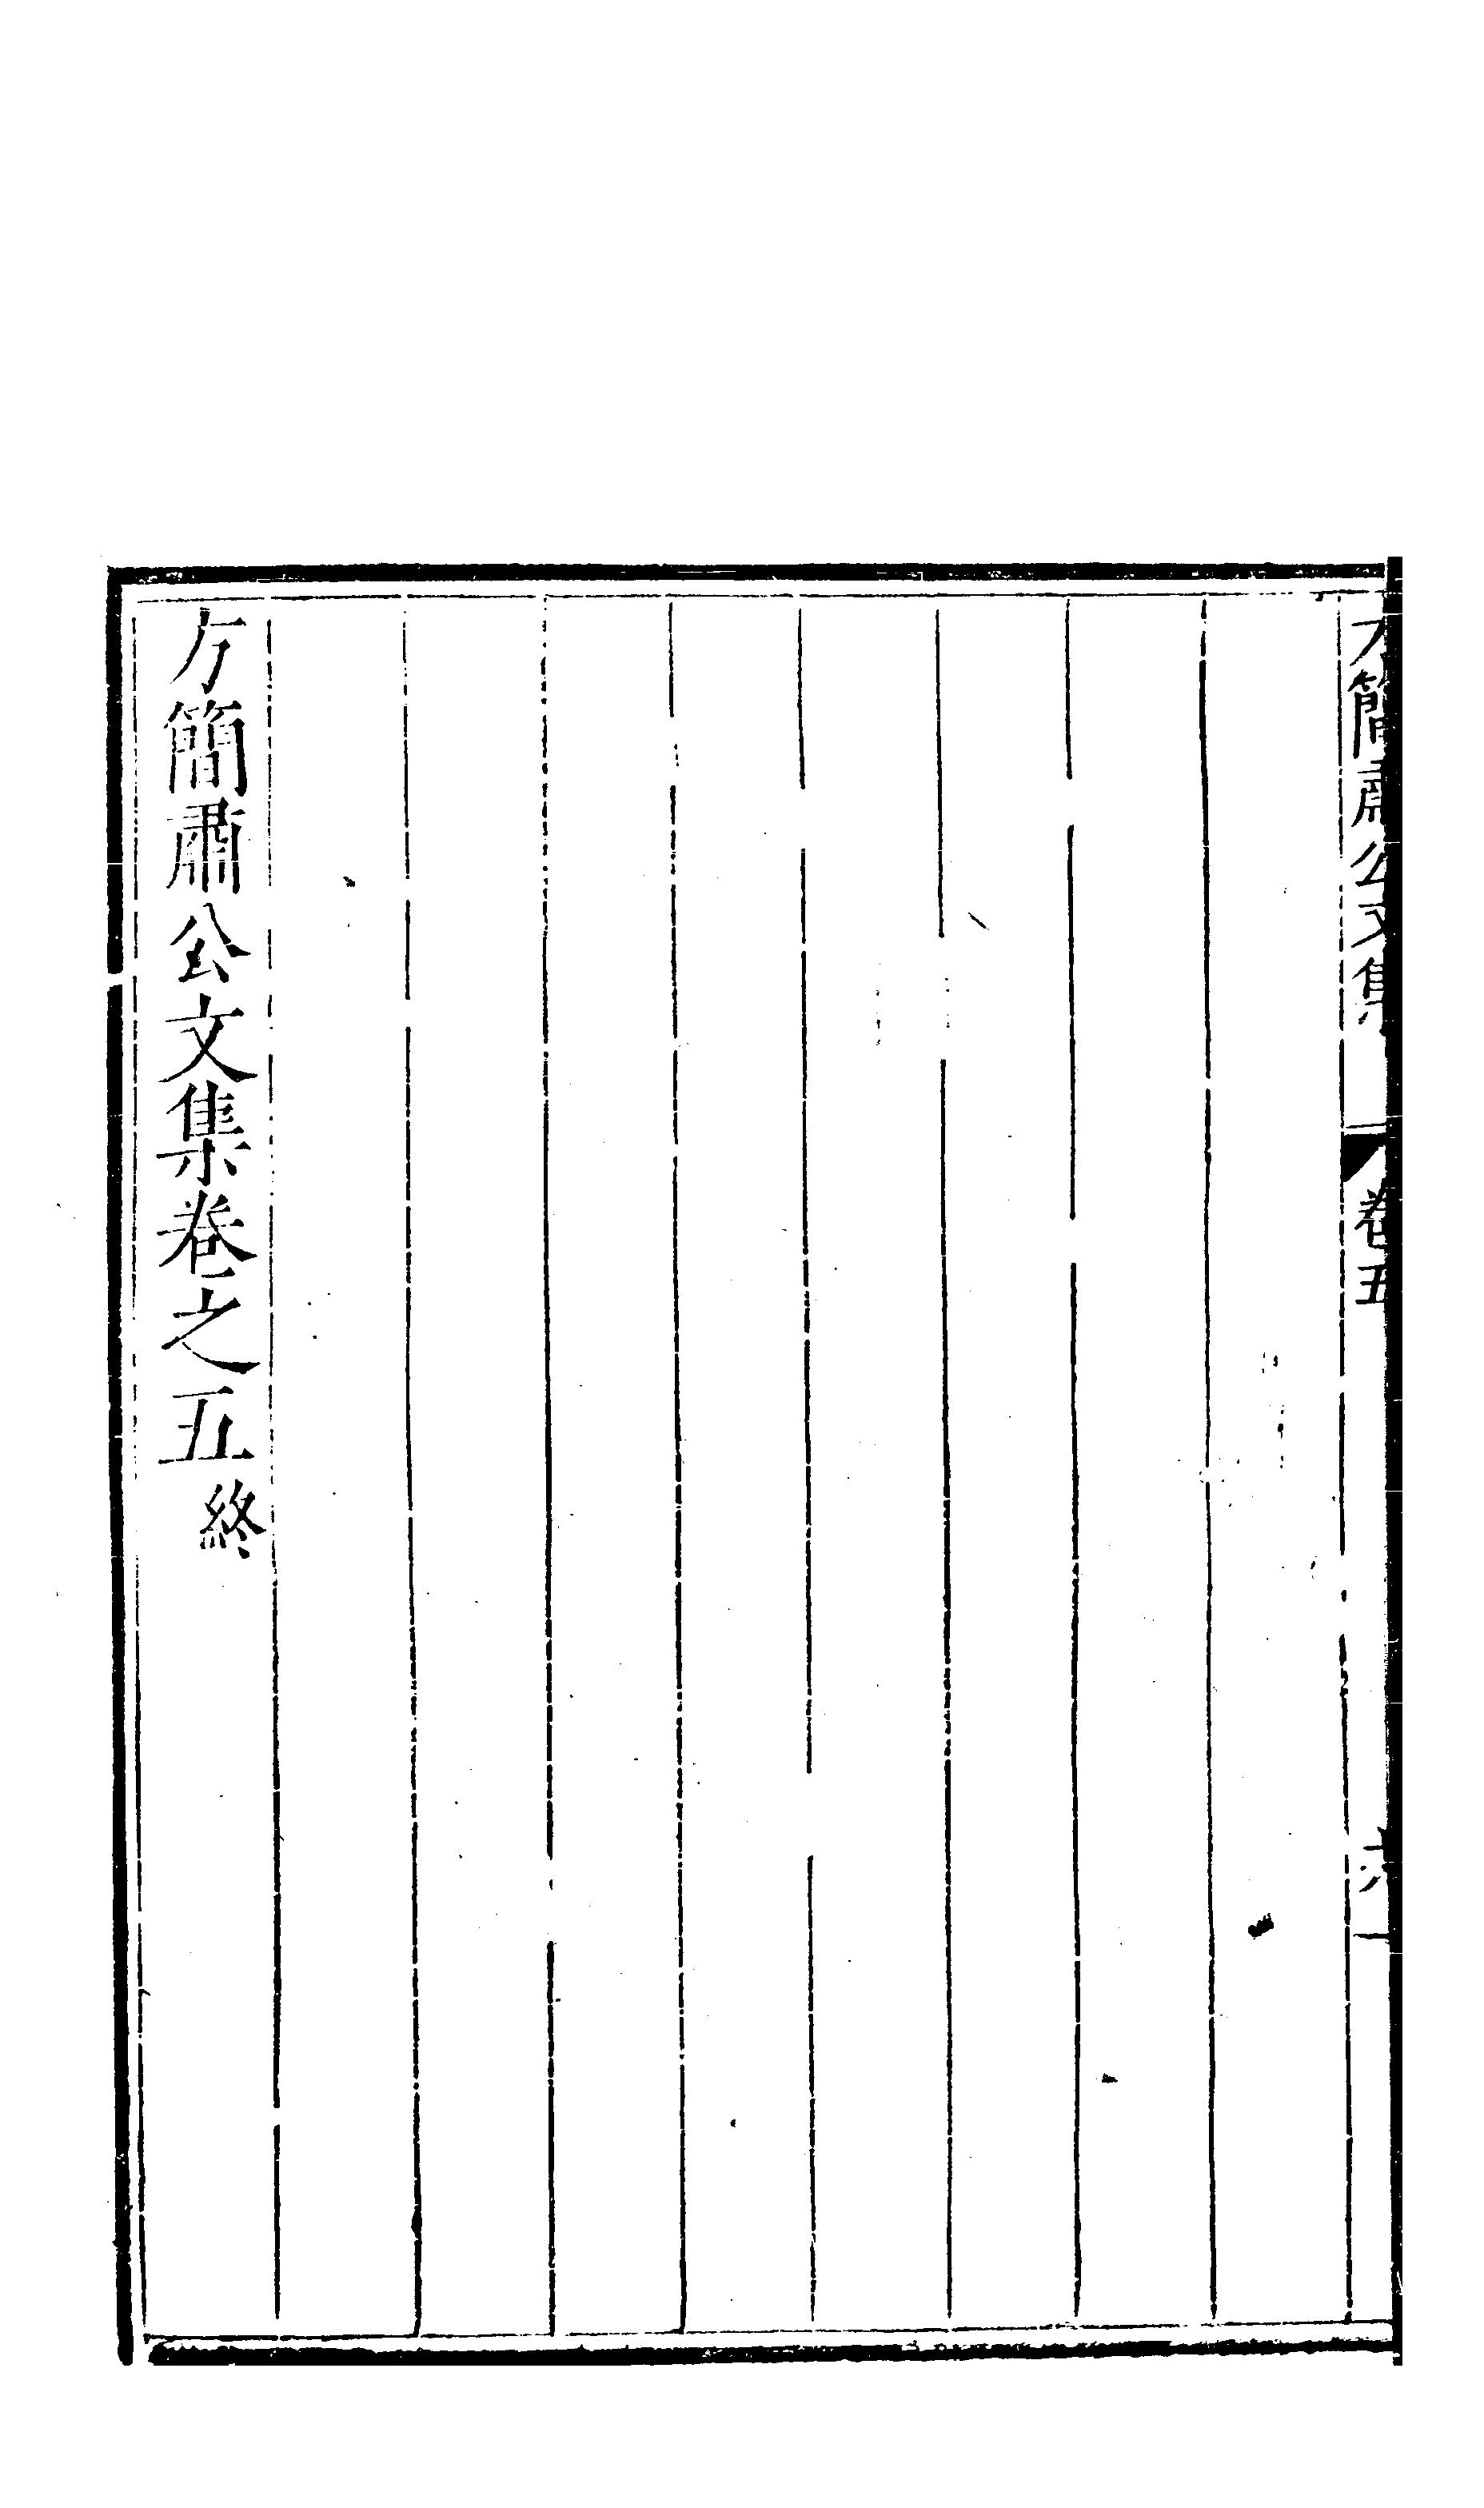 方簡肅公文集
卷五
六一
方簡肅公文集卷之五終